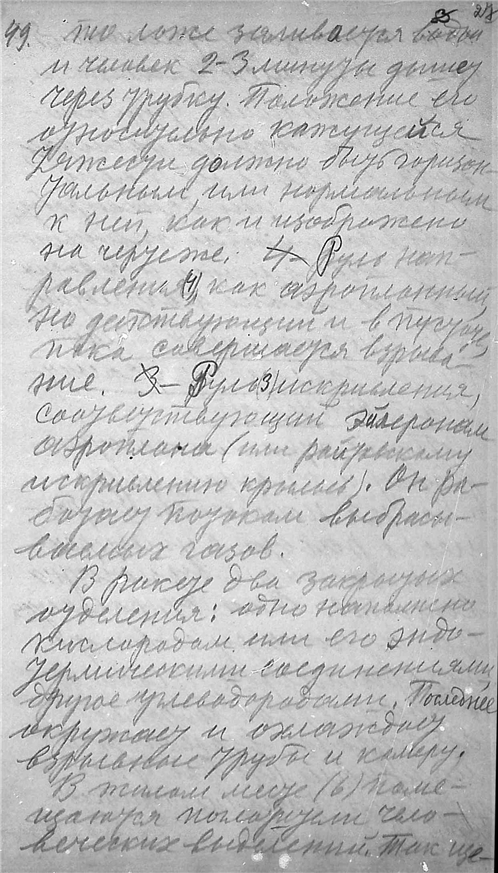 49. то ложе заливается водой
и человек 2-3 минуты дышет
через трубку. Положение его
относительно кажущейся
тяжести должно быть горизон-
тальным, или нормальным
к ней, как и изображено
на чертеже. Руль нап-
равления (4), как аэропланный,
но действующий и в пустоте,
пока совершается взрыва-
ние. Руль (3) искривления,
соответствующий элеронам
аэроплана (или райтовскому
искривлению крыльев). Он ра-
ботает потоком выбрасы-
ваемых газов.
В ракете два закрытых
отделения: одно наполнено
кислородом или его эндо-
термическими соединениями,
другое углеводородами. Последнее
окружает и охлаждает
взрывные трубы и камеру.
В жилом месте (6) поме-
щаются поглотители чело-
веческих выделений. Так ще-